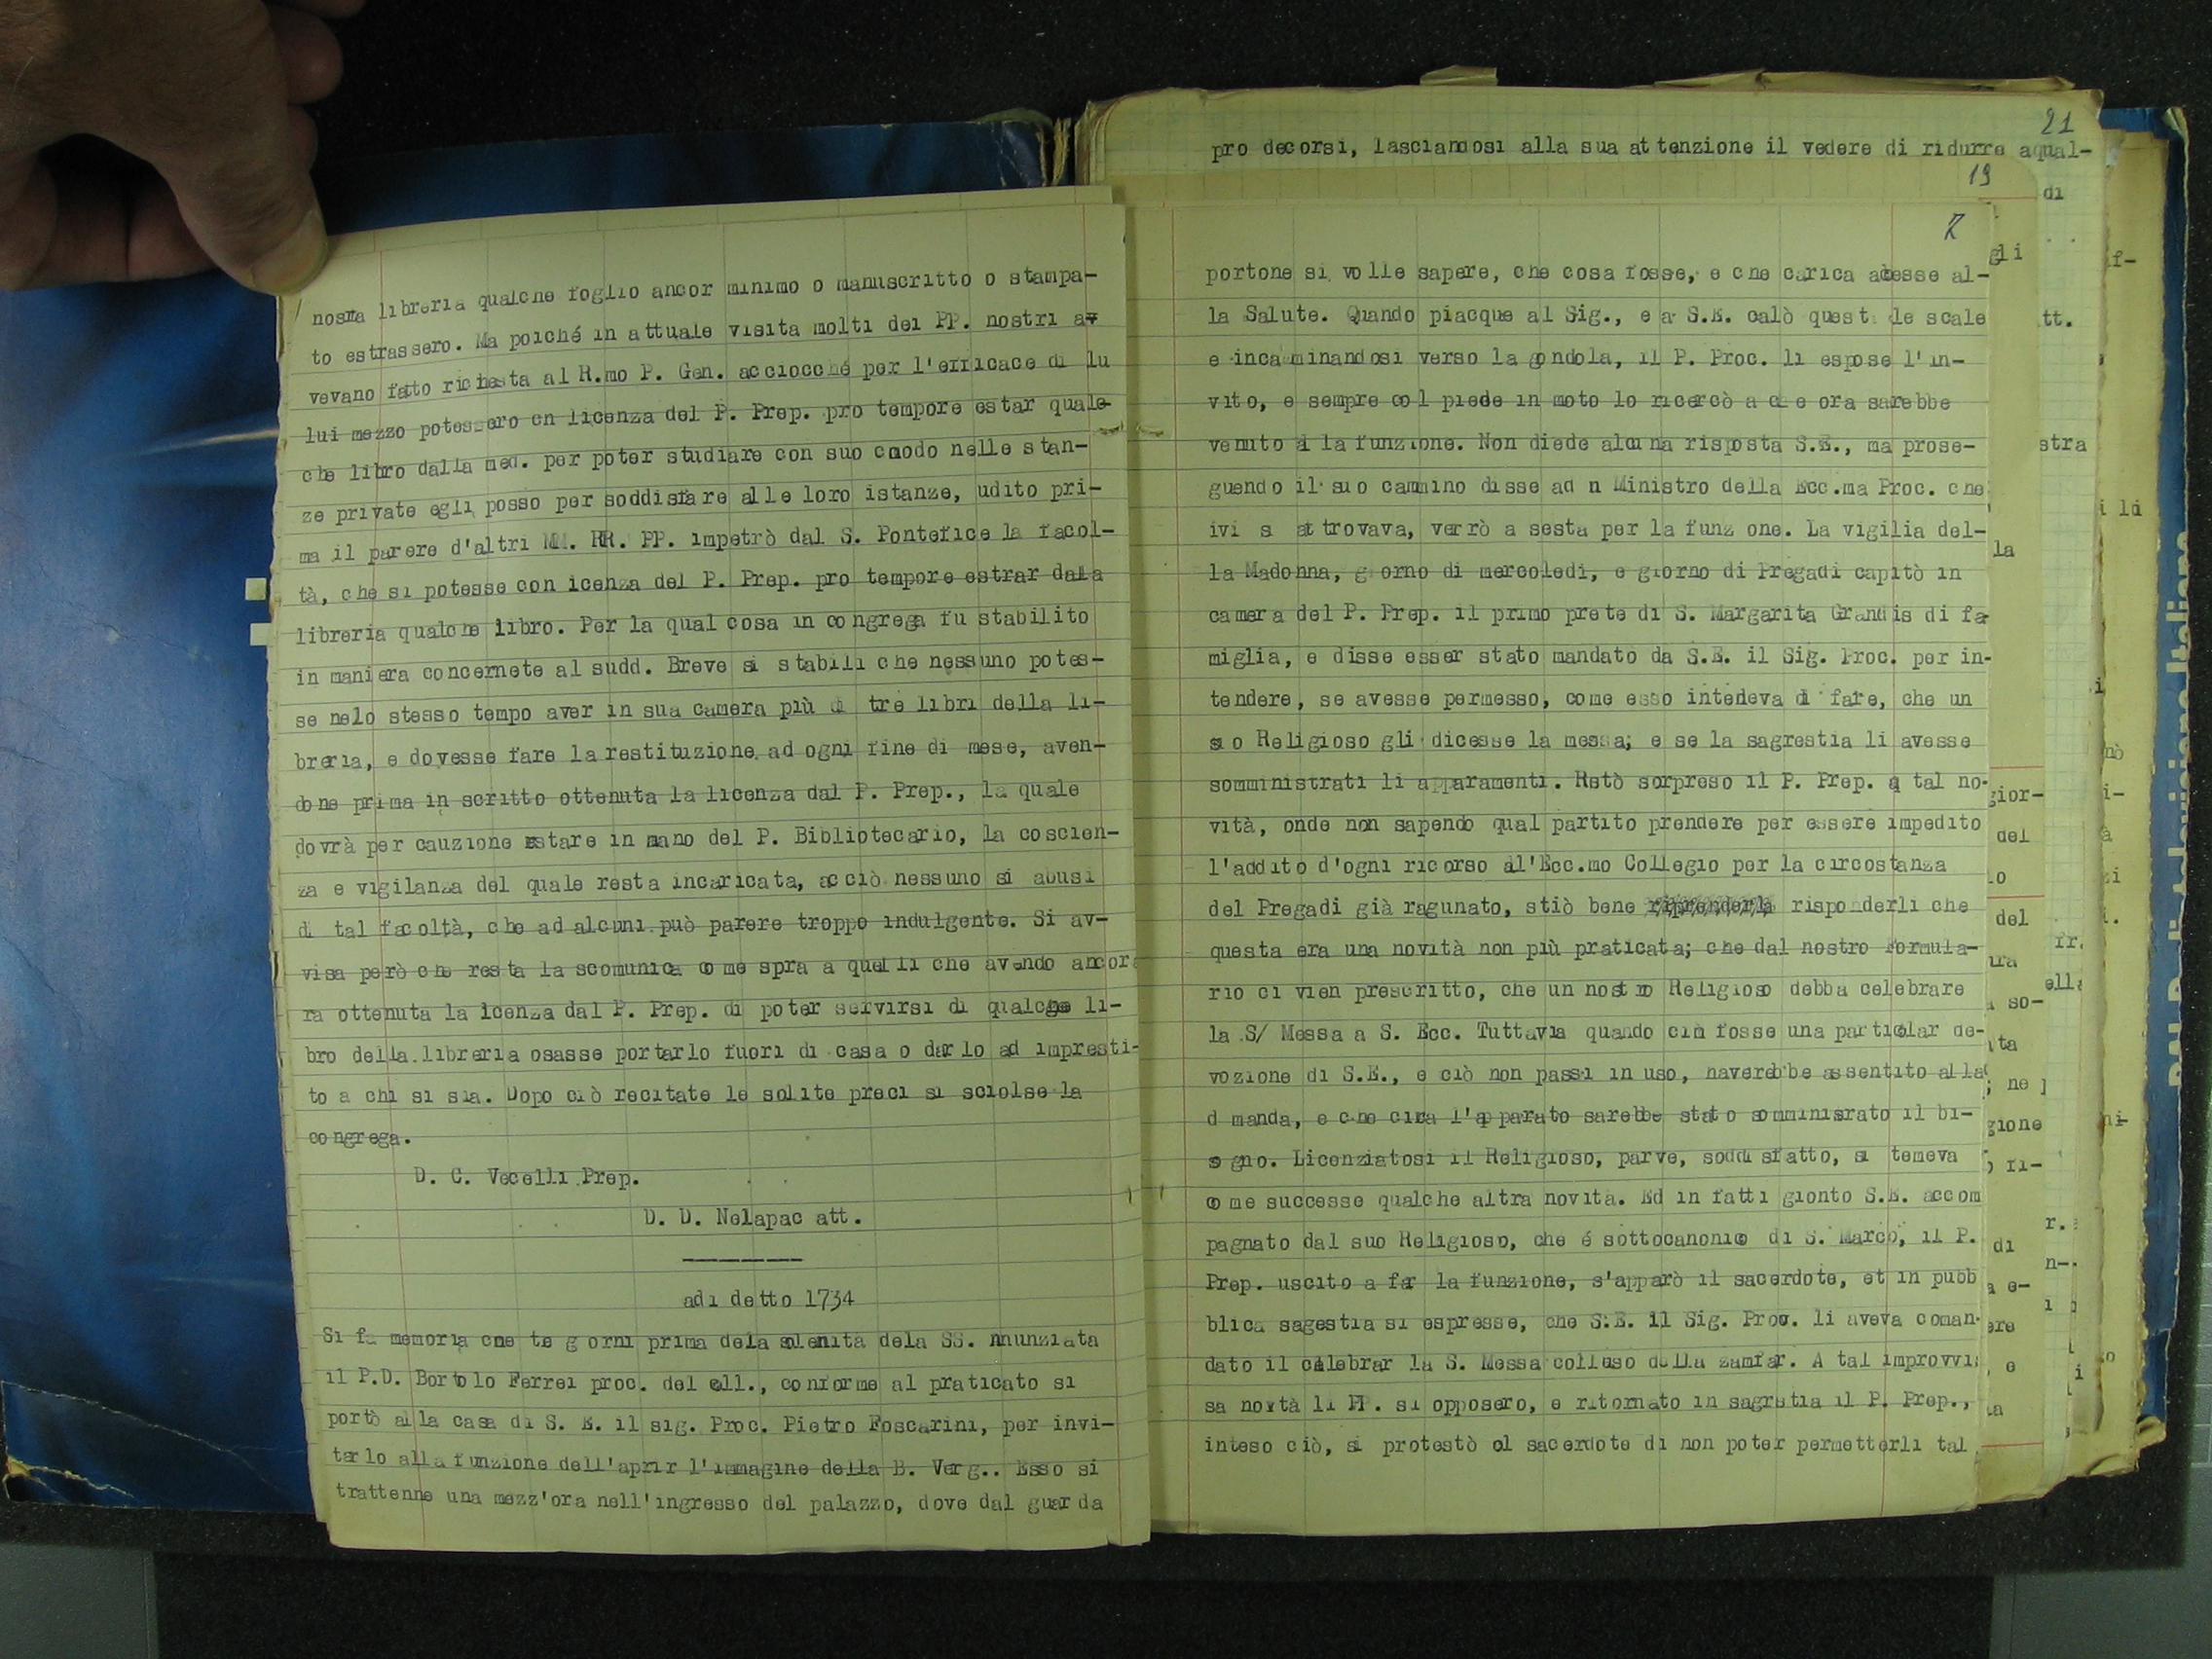 nosta libreria qualche foglio ancor minimo o manuscritto o stampa-
to estrassero. Ma poiché in attuale visita molti dei PP. nostri a
vevano fato richesta al R.mo P. Gen. acciocché per l'efficace di lu
lui mezzo potessero cn licenza del P. Prep. pro tempore estar quale
che libro dalla med. per poter studiare con suo cmodo nelle stan-
ze private egli posso per soddisfare alle loro istanze, udito pri-
ma il parere d'altri MM. RR. PP. impetrò dal S. Pontefice la facol-
tà, che si potesse con icenza del P. Prep. pro tempore estrar dalla
libreria qualche libro. Per la qual cosa in congrega fu stabilito
in maniera concernete al sudd. Breve si stabilì che nessuno potes-
se nelo stesso tempo aver in sua camera più di tre libri della li-
breria, e dovesse fare la restituzione ad ogni fine di mese, aven-
done prima in scritto ottenuta la licenza dal P. Prep., la quale
dovrà per cauzione estare in mano del P. Bibliotecario, la coscien-
za e vigilanza del quale resta incaricata, acciò nessuno si abusi
di tal facoltà, che ad alcuni può parere troppo indulgente. Si av-
visa però che resta la scomunica come spra a quelli che avendo ancor
ra ottenuta la icenza dal P. Prep. di poter servirsi di qualche li-
bro della libreria osasse portarlo fuori di casa o darlo ad impresti-
to a chi si sia. Dopo ciò recitate le solite preci si sciolse la
congrega.
D. C. Vecelli Prep.
D. D. Nelapac att.
adi detto 1734
Si fa memoria che te giorni prima dela solenità dela SS. nnunziata
il P.D. Bortolo Ferrei proc. del coll., conforme al praticato si
portò alla casa di S. E. il sig. Proc. Pietro Foscarini, per invi-
tarlo alla funzione dell'aprir l'immagine della B. Verg.. Esso si
trattenne una mezz'ora nell'ingresso del palazzo, dove dal guarda
21
pro decorsi, lasciandosi alla sua attenzione il vedere di ridurre aqual-
19
portone si volle sapere, che cosa fosse, e che carica avesse al-
la Salute. Quando piacque al Sig., e a S.E. calò quest le scale
e incaminandosi verso la gondola, il P. Proc. li espose l'in-
vito, e sempre col piede in moto lo ricercò a che ora sarebbe
venuto a la funzione. Non diede alcuna risposta S.E., ma prose-
guendo il suo cammino disse ad n Ministro della Ecc.ma Proc. che
ivi s attrovava, verrò a sesta per la funz one. La vigilia del-
la Madonna, giorno di mercoledì, e giorno di Pregadi capitò in
camera del P. Prep. il primo prete di S. Margarita Grandis di fa
miglia, e disse esser stato mandato da S.E. il Sig. Proc. per in-
tendere, se avesse permesso, come esso intedeva di fare, che un
suo Religioso gli dicesse la messa; e se la sagrestia li avesse
somministrati li apparamenti. Rstò sorpreso il P. Prep. a tal no-
vità, onde non sapendo qual partito prendere per essere impedito
l'addito d'ogni ricorso al'Ecc.mo Collegio per la circostanza
del Pregadi già ragunato, stiò bene risponderli che
questa era una novità non più praticata; che dal nostro formula-
rio ci vien prescritto, che un nostro Religioso debba celebrare
la S/ Messa a S. Ecc. Tuttavia quando ciò fosse una particolar de-
vozione di S.E., e ciò non passi in uso, haverebbe assentito alla
d manda, e che circa l'apparato sarebbe stato somminisrato il bi-
sogno. Licenziatosi il Religioso, parve, soddisfatto, si temeva
come successe qualche altra novità. Ed in fatti gionto S.E. accom
pagnato dal suo Religioso, che é sottocanonico di S. Marco, il P.
Prep. uscito a far la funzione, s'apparò il sacerdote, et in pubb
blica sagestia si espresse, che S.E. il Sig. Proc. li aveva coman-
dato il celebrar la S. Messa colluso della zamfar. A tal improvvi
sa novtà li PP. si opposero, e ritornato in sagrstia il P. Prep.,
inteso ciò, si protestò ol sacerdote di non poter permetterli tal